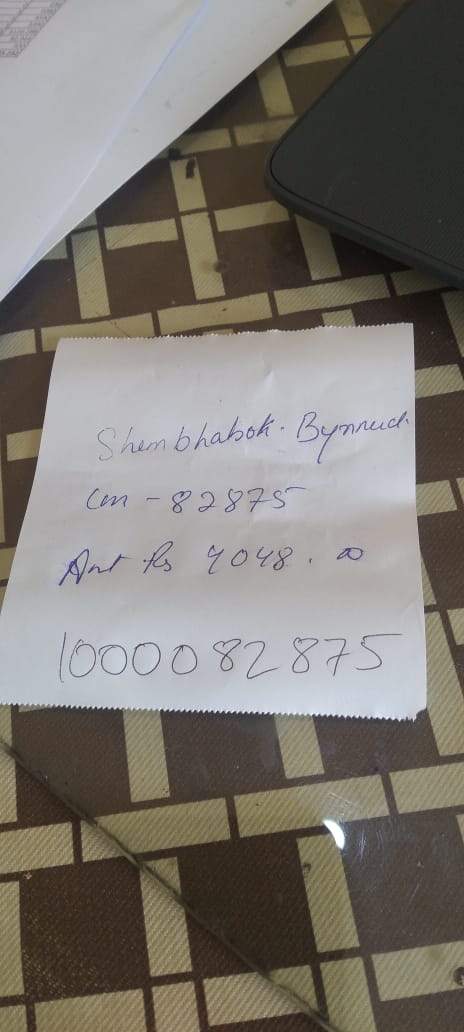 Shembhabok. Bynnud
Con - 82875
Amt Rs 7048.00
1000082875